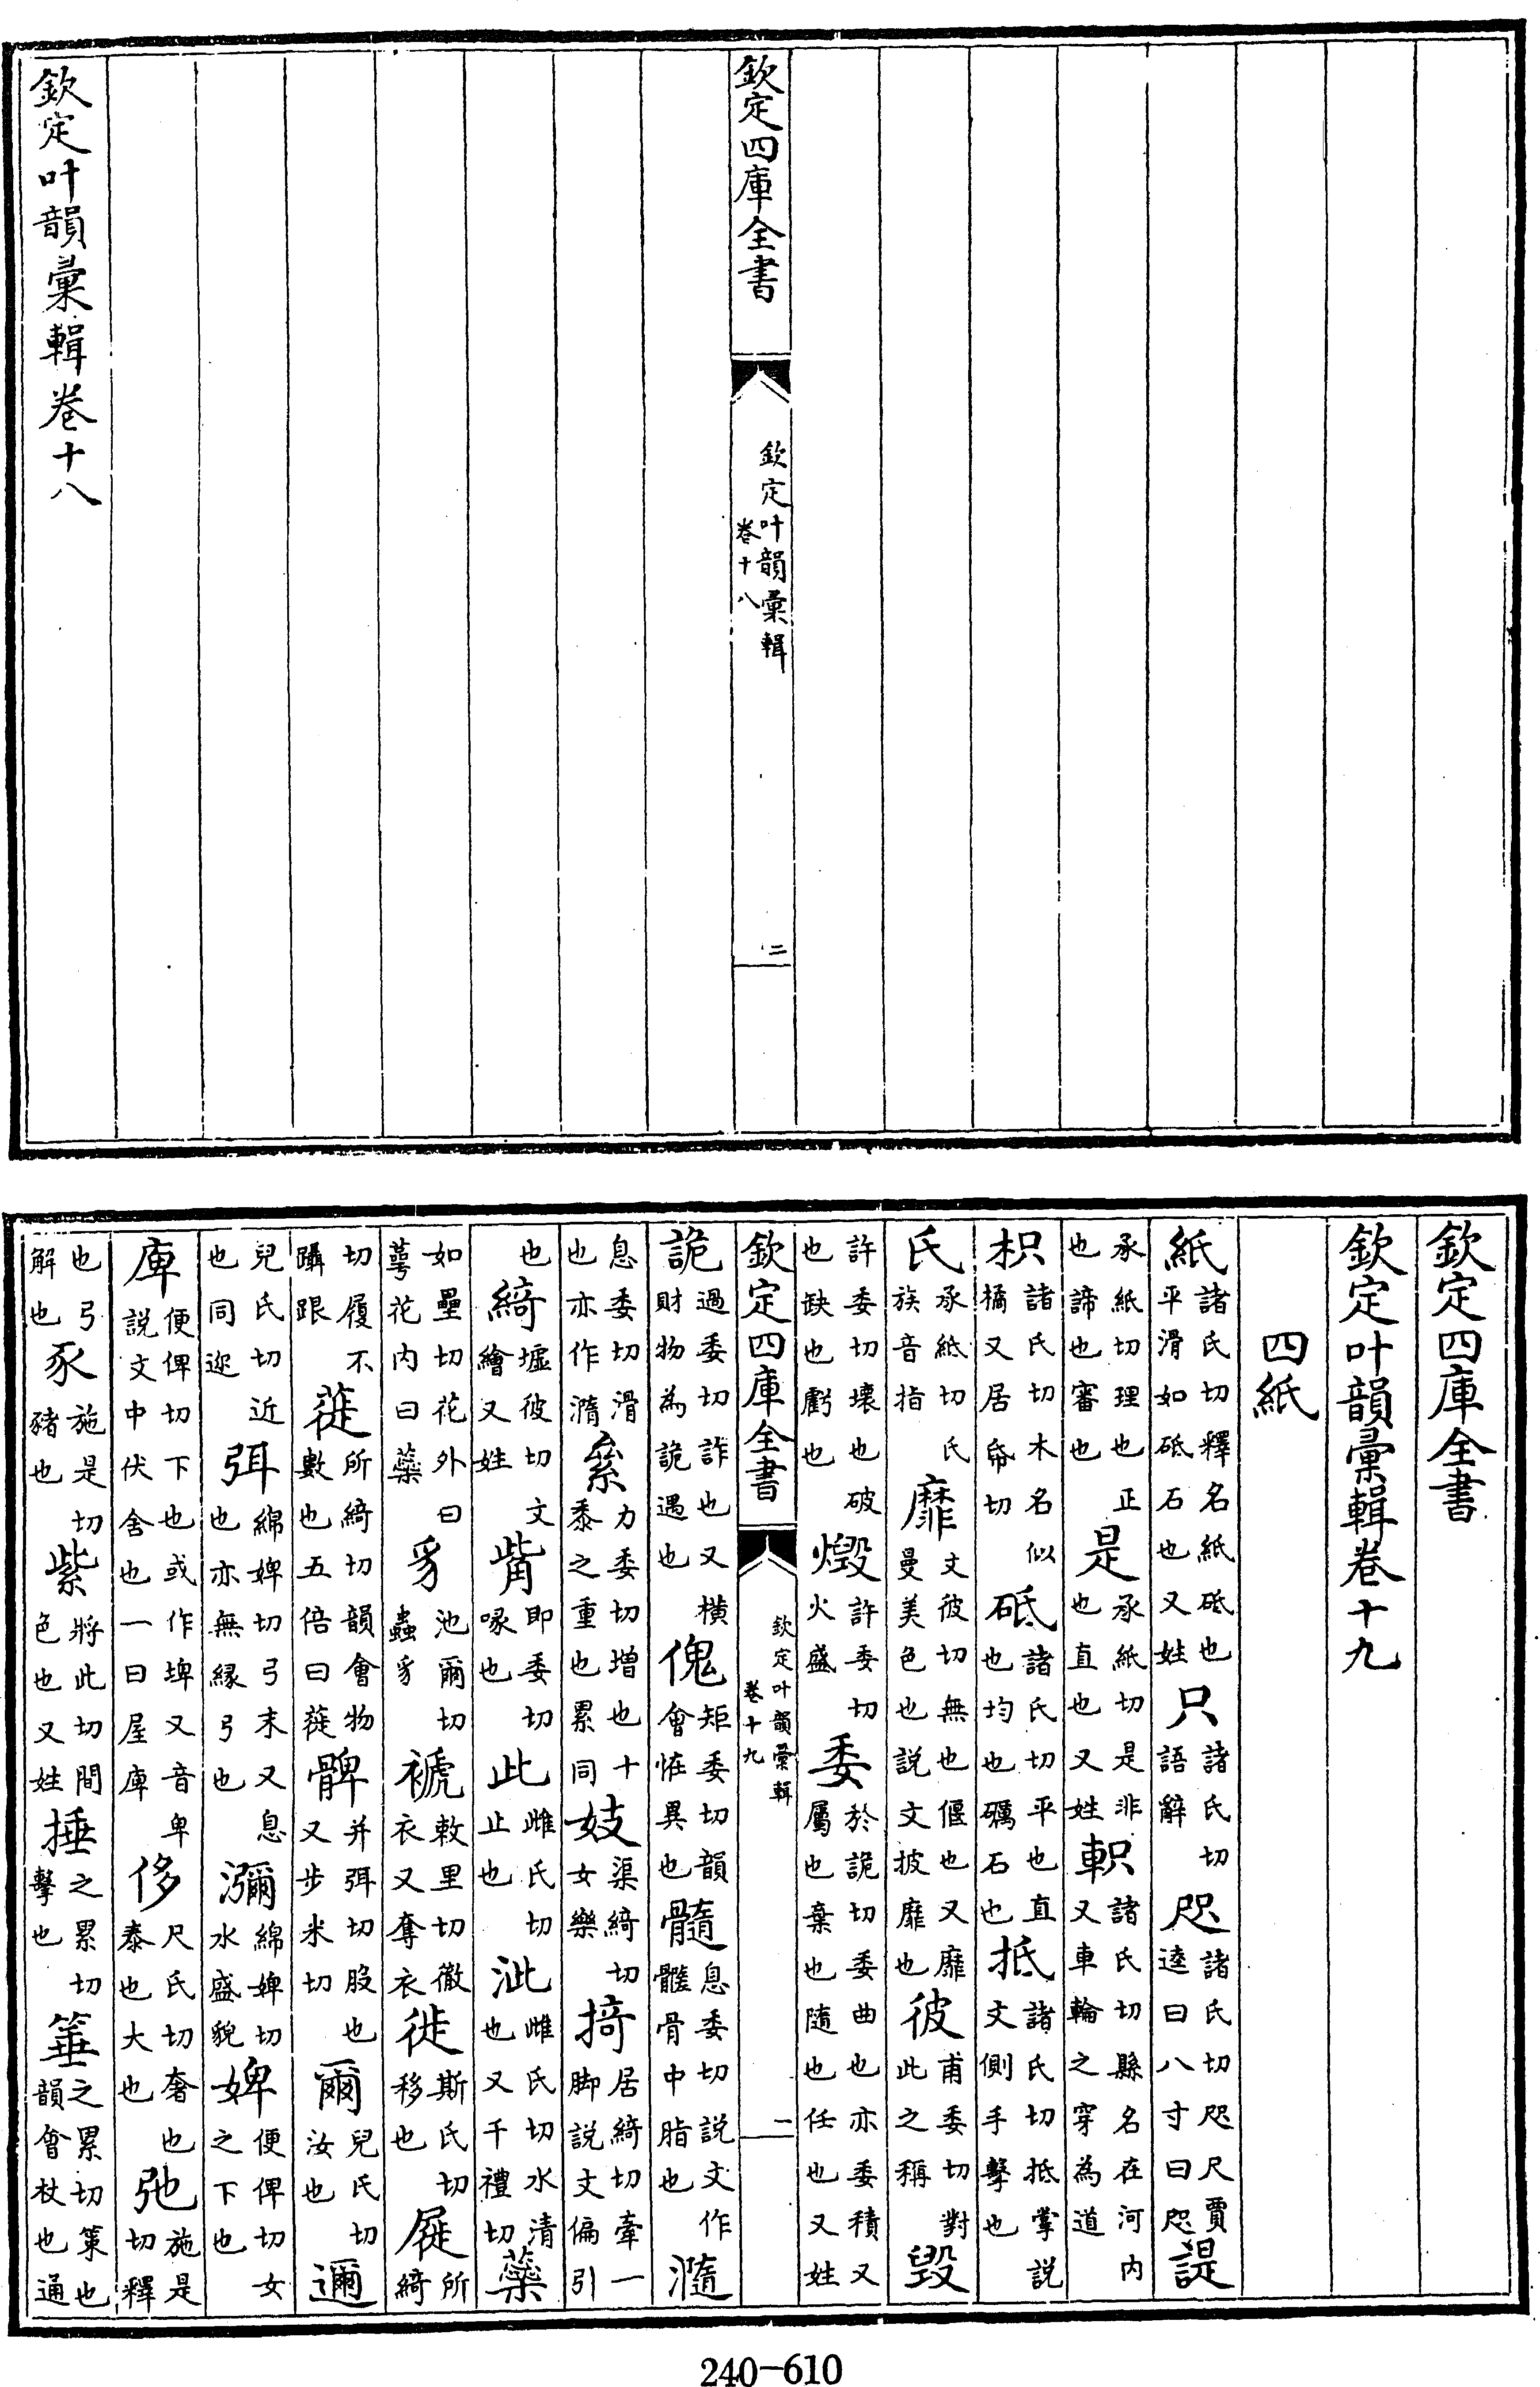 欽定四庫全書
欽定叶韻彙輯
卷十八
二
欽定叶韻彙輯卷十八
欽定四庫全書
欽定叶韻彙輯卷十九
四紙
紙諸氏切釋名紙砥也平滑如砥石也又姓只諸氏切語辭咫諸氏切咫尺賈逵曰八寸曰咫諟
承紙切理也正也諦也審也是承紙切是非也直也又姓軹諸氏切縣名在河内又車輪之穿為道
枳諸氏切木名似橘又居帋切砥諸氏切平也直也均也礪石也抵諸氏切抵掌説文側手擊也
氏承紙切氏族音指靡文彼切無也偃也又靡曼美色也説文披靡也彼甫委切對此之稱毁
許委切壞也破也缺也虧也燬許委切火盛委於詭切委曲也亦委積又屬也棄也隨也任也又姓
欽定四庫全書
欽定叶韻彙輯
卷十九
一
詭過委切詐也又横財物為詭遇也傀矩委切韻會恠異也髓息委切説文作髓骨中脂也瀡
息委切滑也亦作瀡絫力委切增也十黍之重也累同妓渠綺切女樂掎居綺切牽一脚説文偏引
也綺墟彼切文繒又姓觜即委切喙也此雌氏切止也泚雌氏切水清也又千禮切蘂
如壘切花外曰萼花内曰蘂豸池爾切蟲豸褫敕里切徹衣又奪衣徙斯氏切移也屣所綺
切履不躡跟蓰所綺切韻會物數也五倍曰蓰髀并弭切股也又步米切爾兒氏切汝也邇
兒氏切近也同迩弭綿婢切弓末又息也亦無縁弓也瀰綿婢切水盛貌婢便俾切女之下也
庳便俾切下也或作埤又音卑説文中伏舍也一曰屋庳侈尺氏切奢也泰也大也弛施是切釋
也弓解也豕施是切豬也紫將此切間色也又姓捶之累切擊也箠之累切策也韻會杖也通
240-610